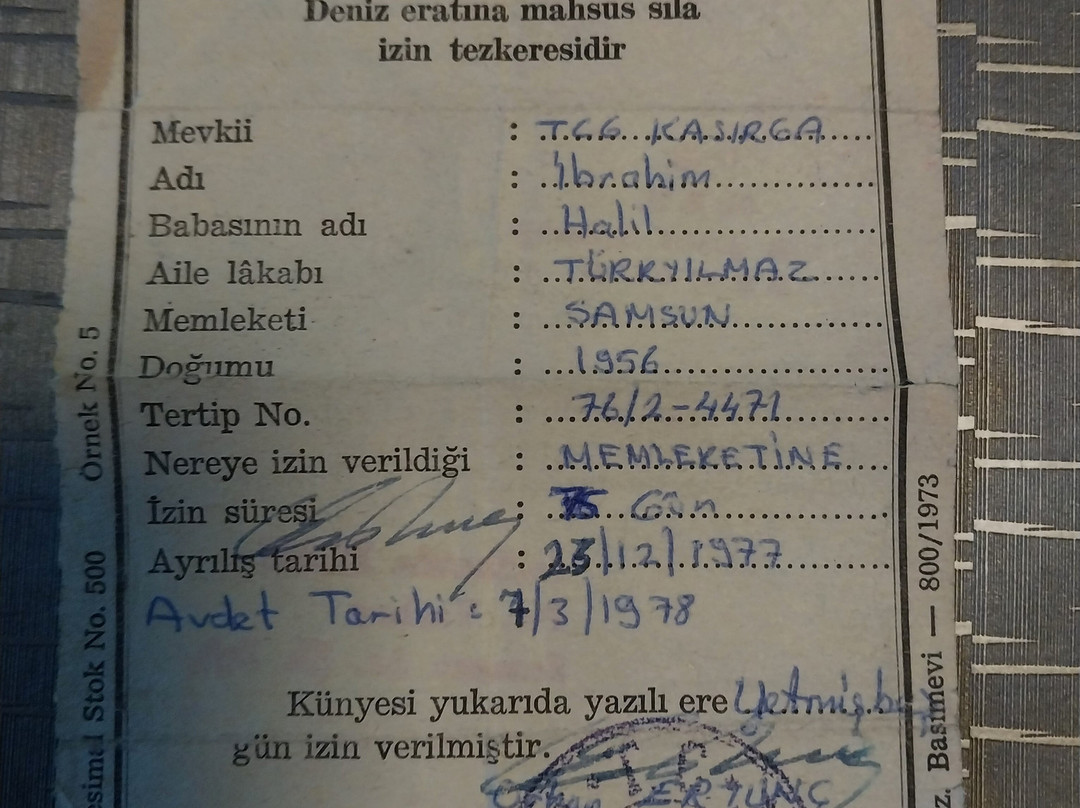 Deniz eratına mahsus sıla
izin tezkeresidir
Mevkii : TCG KASIRGA
Adı : İbrahim
Babasının adı : Halil
Aile lâkabı : TÜRKYILMAZ
Memleketi : SAMSUN
Doğumu : 1956
Tertip No. : 76/2-4471
Nereye izin verildiği : MEMLEKETİNE
İzin süresi : 75 Gün
Ayrılış tarihi : 23/12/1977
Avdet Tarihi : 7/3/1978
Künyesi yukarıda yazılı ere Yetmiş
gün izin verilmiştir.
ERTUNÇ
Örnek No. 5
Stok No. 500
Basımevi — 800/1973